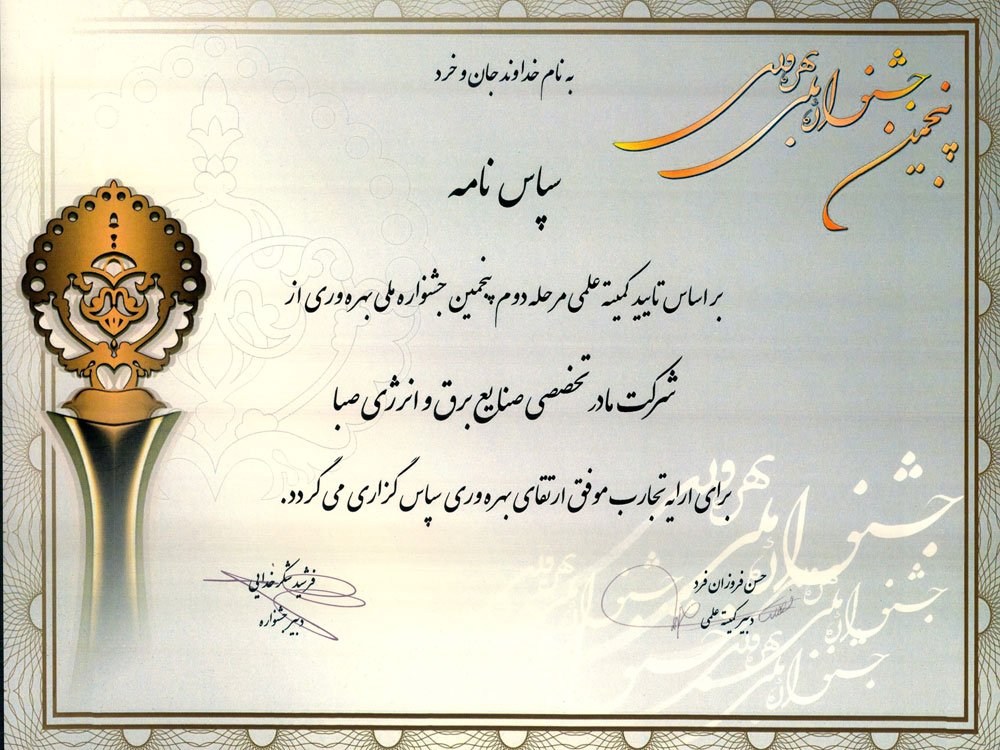 به نام خداوند جان و خرد
پنجمین جشنواره ملی بهره وری
سپاس نامه
بر اساس تایید کمیته علمی مرحله دوم پنجمین جشنواره ملی بهره وری از
شرکت مادر تخصصی صنایع برق و انرژی صبا
برای ارایه تجارب موفق ارتقای بهره وری سپاس گزاری می گردد.
حسن فروزان فرد
دبیر کمیته علمی
فرشید شکرخدایی
دبیر جشنواره
جشنواره ملی بهره وری
جشنواره ملی بهره وری
جشنواره ملی بهره وری